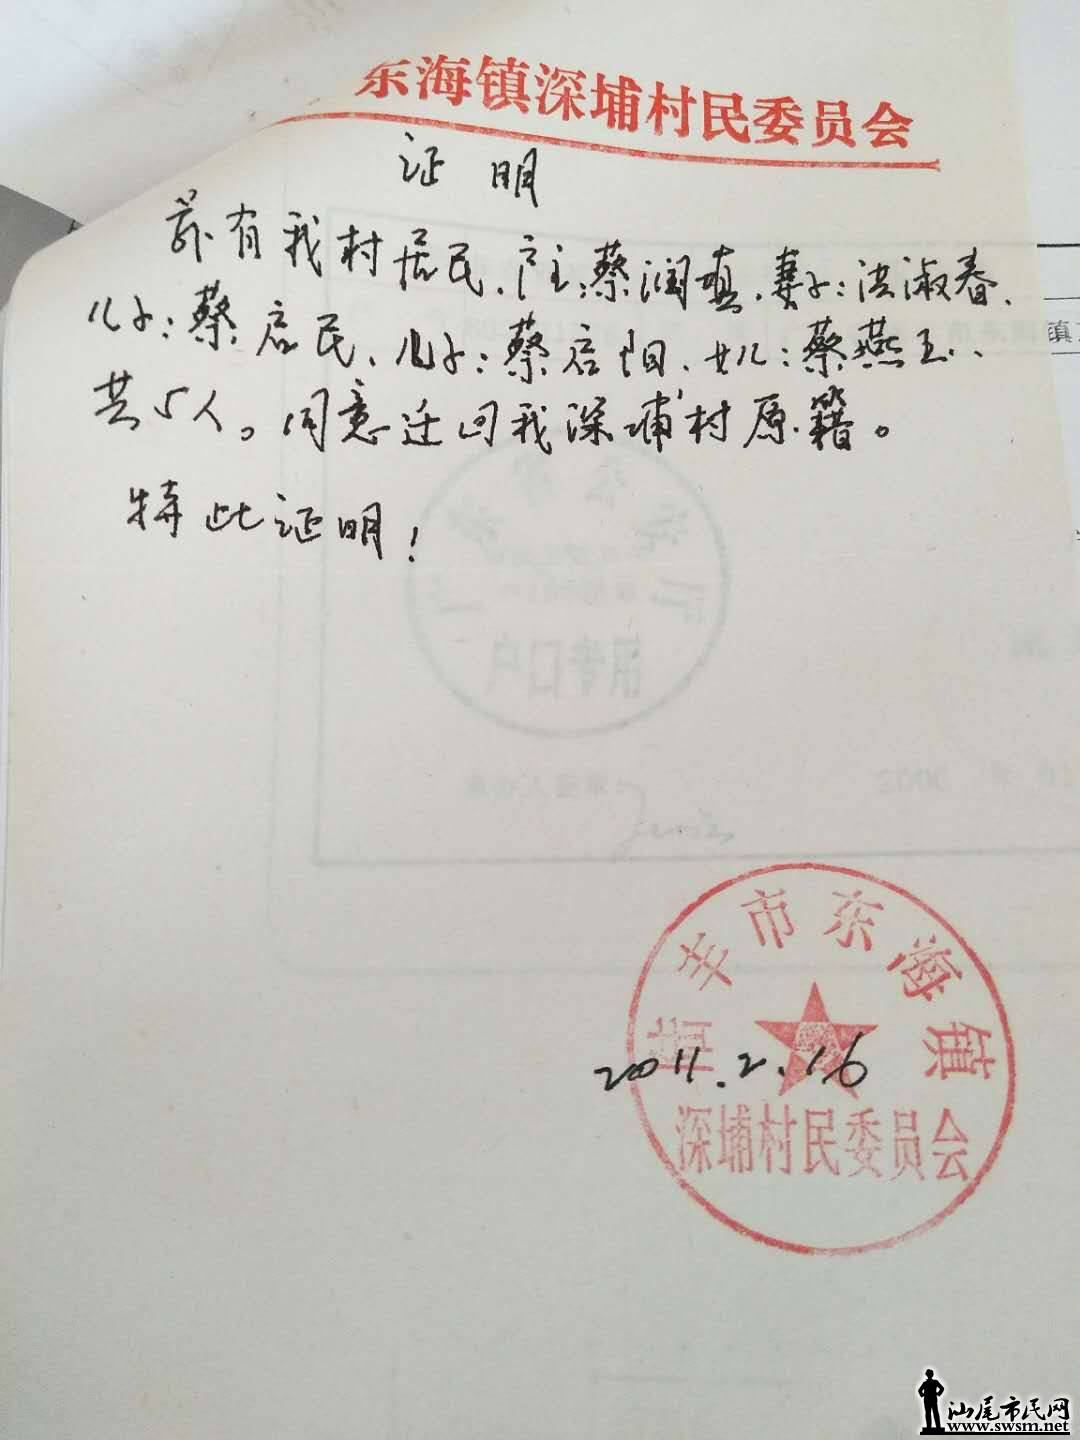 东海镇深埔村民委员会
证明
兹有我村居民、户主:蔡润填、妻子:洪淑春、
儿子:蔡启民、儿子:蔡启阳、女儿:蔡燕玉、
共5人。同意迁回我深埔村原籍。
特此证明!
户口专用
陆丰市东海镇
2011.2.16
深埔村民委员会
汕尾市民网
www.swsm.net